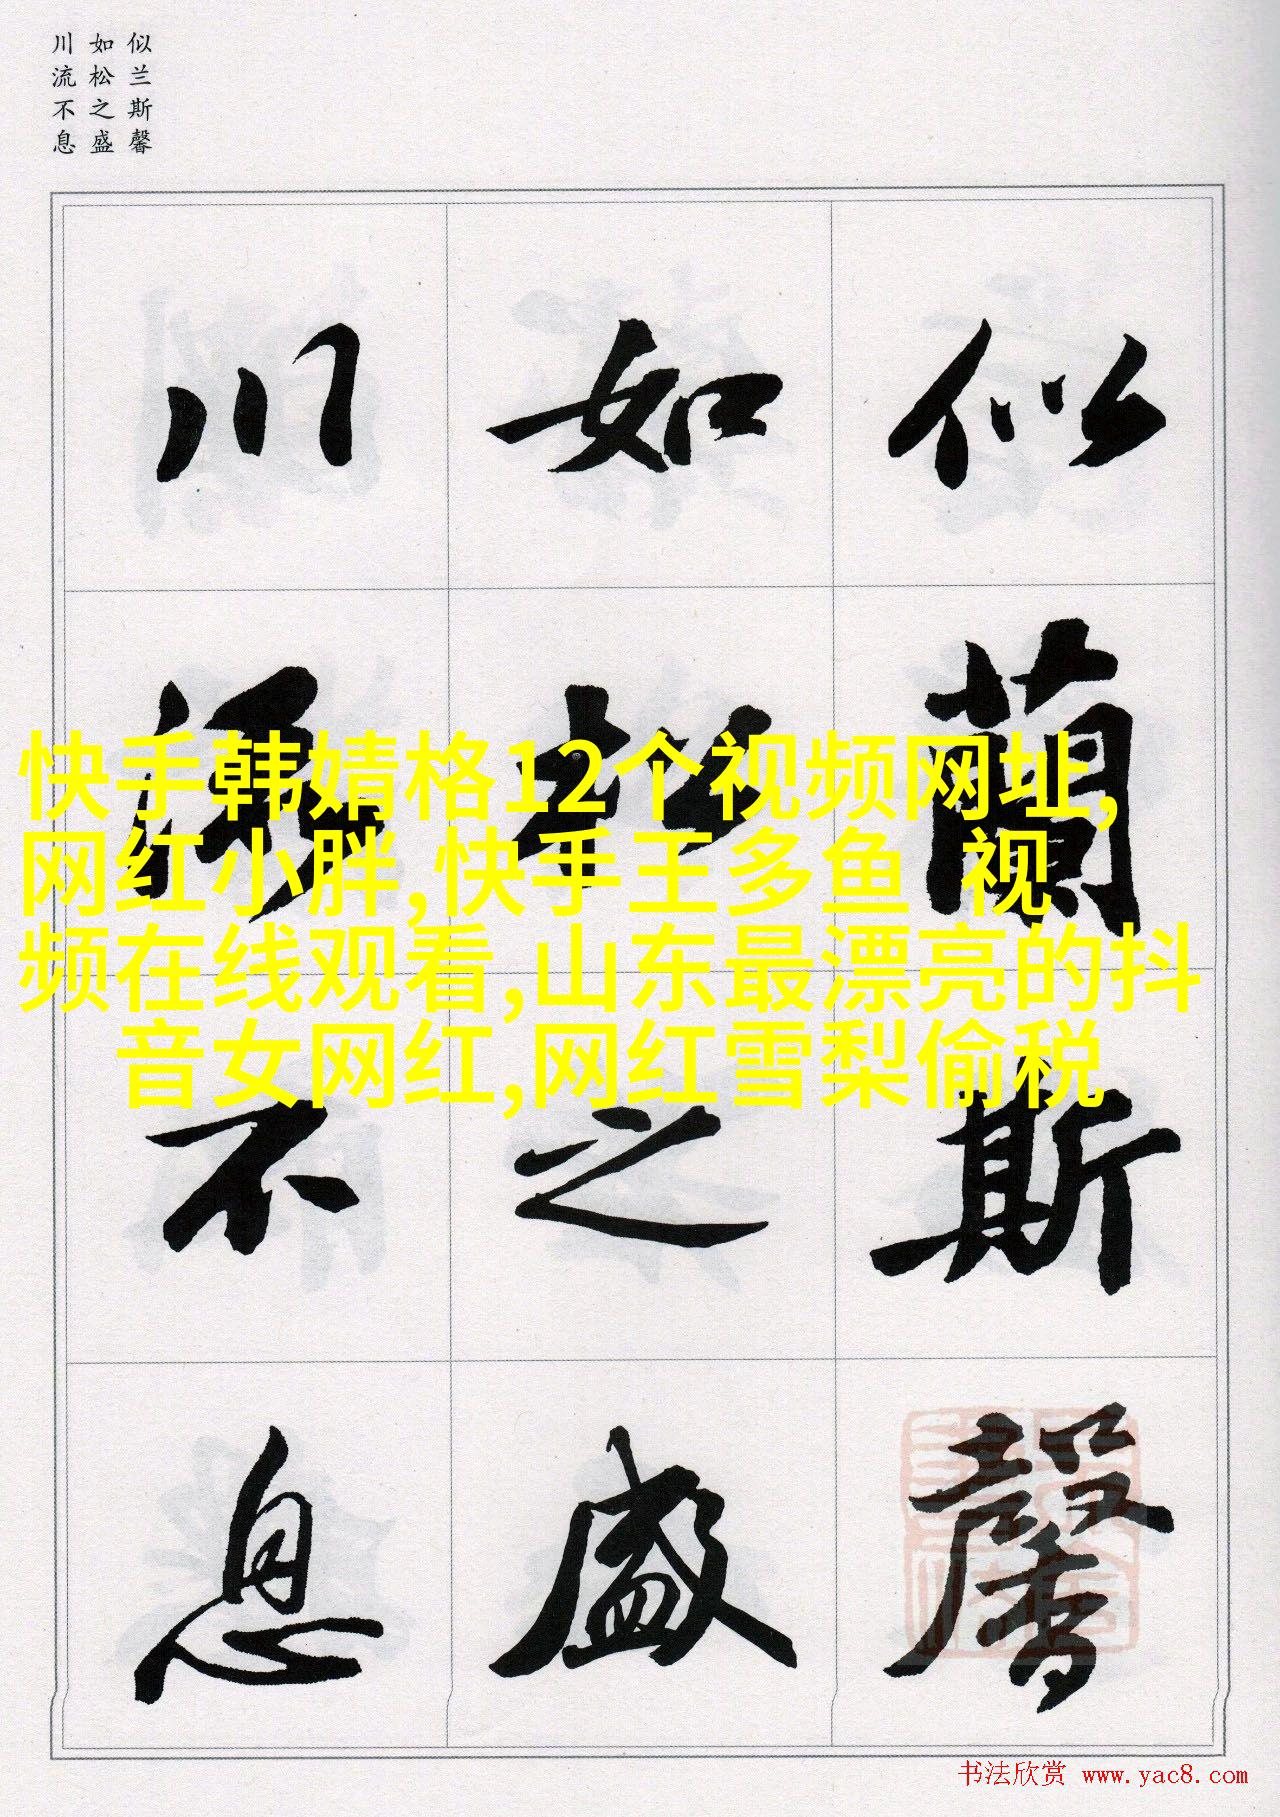 似兰斯馨
如松之盛
川流不息
似蘭斯馨
如松之盛
川流不息
快手韩婧格12个视频网址,
网红小胖,快手王多鱼 视
频在线观看,山东最漂亮的抖
音女网红,网红雪梨偷税
书法欣赏 www.yac8.com